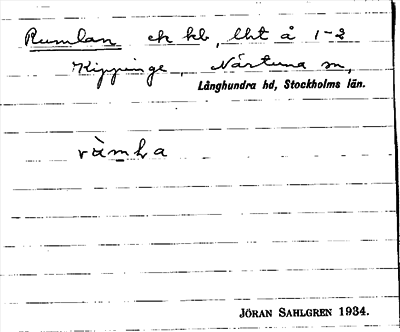 Rumlan ek hb, lht å 1-2
Kippinge, Närtuna sn,
Långhundra hd, Stockholms län.
ràmla
JÖRAN SAHLGREN 1934.